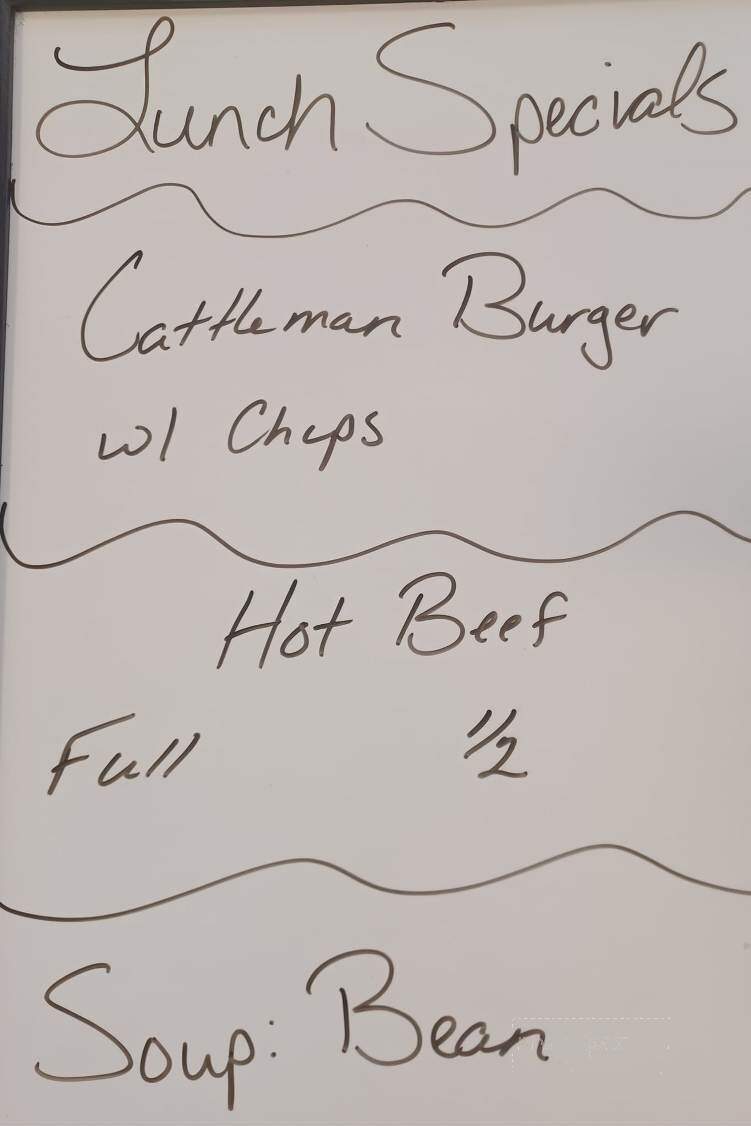 Lunch Specials
Cattleman Burger
w/ Chips
Hot Beef
Full 1/2
Soup: Bean